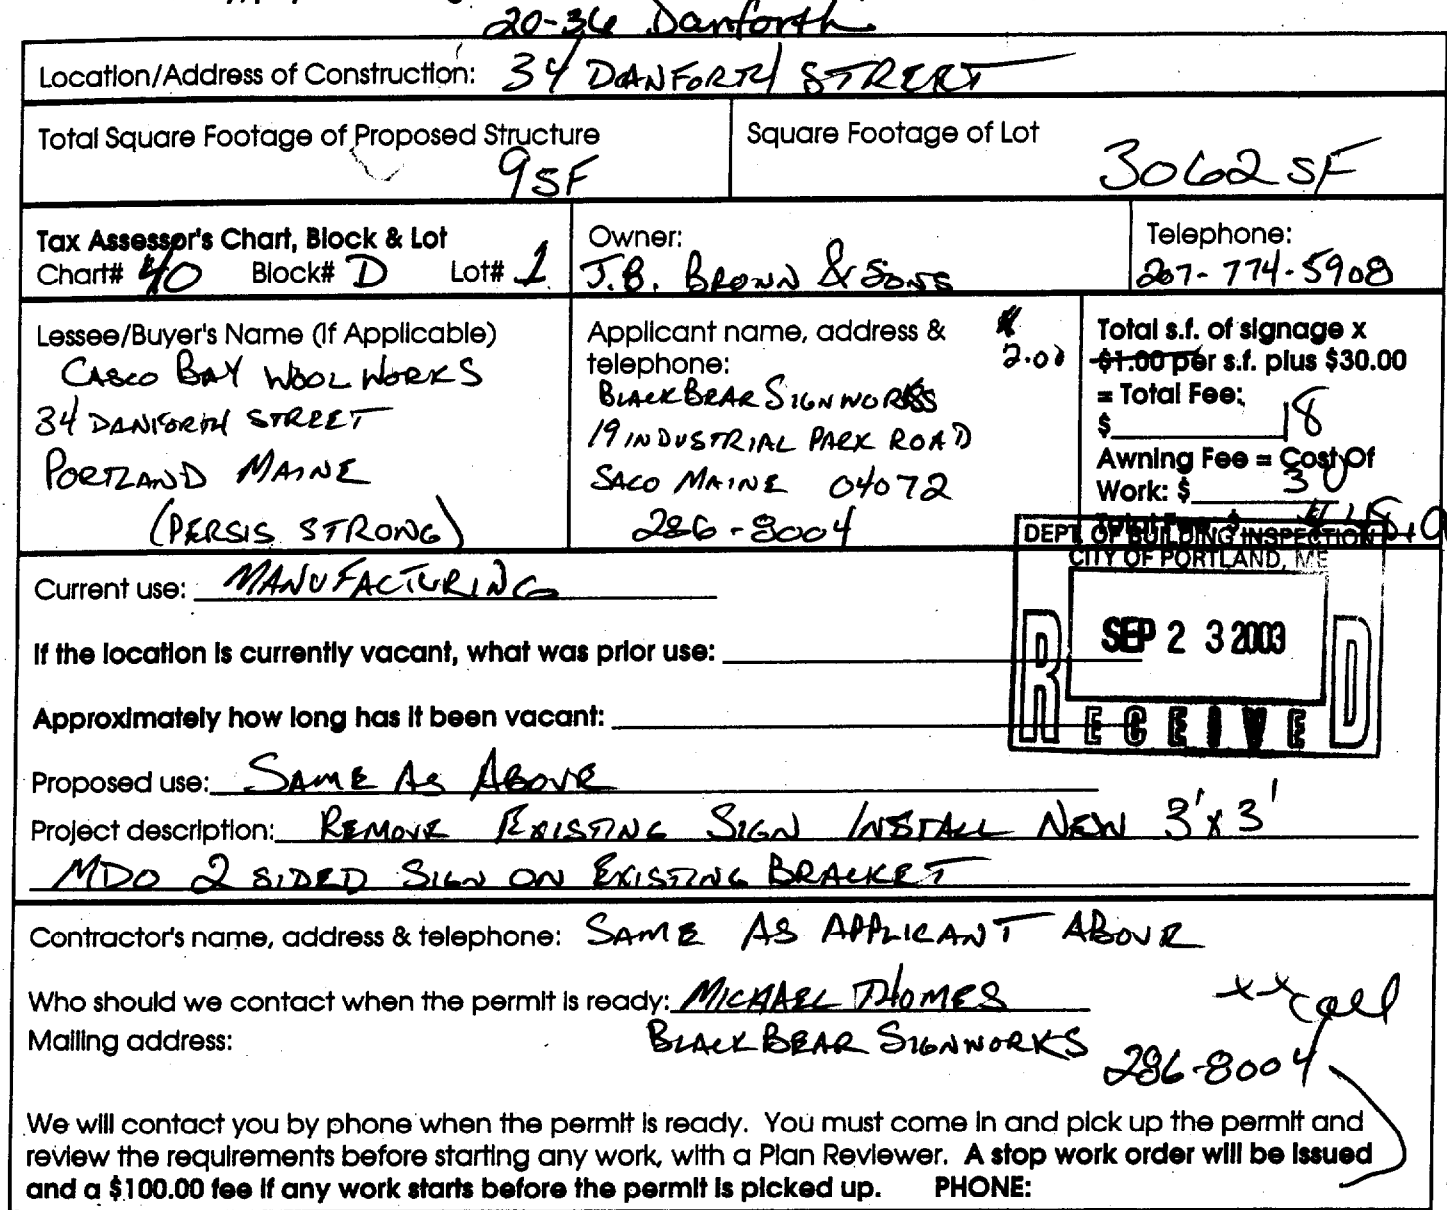 20-36 Danforth
Location/Address of Construction: 34 DANFORTH STREET
Total Square Footage of Proposed Structure
9 SF
Square Footage of Lot
3062 SF
Tax Assessor's Chart, Block & Lot
Chart# 40 Block# D Lot# 1
Owner:
J.B. BROWN & SONS
Telephone:
207-774-5908
Lessee/Buyer's Name (If Applicable)
CASCO BAY WOOL WORKS
34 DANFORTH STREET
PORTLAND MAINE
(PERSIS STRONG)
Applicant name, address &
telephone:
BLACK BEAR SIGNWORKS
19 INDUSTRIAL PARK ROAD
SACO MAINE 04072
286-8004
2.00
Total s.f. of signage x
$1.00 per s.f. plus $30.00
= Total Fee:
$ 18
Awning Fee = Cost Of
Work: $ 30
Total Fee: $
DEPT. OF BUILDING INSPECTION
CITY OF PORTLAND, ME
SEP 23 2003
RECEIVED
Current use: MANUFACTURING
If the location is currently vacant, what was prior use:
Approximately how long has it been vacant:
Proposed use: SAME AS ABOVE
Project description: REMOVE EXISTING SIGN INSTALL NEW 3'x3'
MDO 2 SIDED SIGN ON EXISTING BRACKET
Contractor's name, address & telephone: SAME AS APPLICANT ABOVE
Who should we contact when the permit is ready: MICHAEL THOMES
xx call
Mailing address: BLACK BEAR SIGNWORKS
286-8004
We will contact you by phone when the permit is ready. You must come in and pick up the permit and
review the requirements before starting any work, with a Plan Reviewer. A stop work order will be issued
and a $100.00 fee if any work starts before the permit is picked up. PHONE: